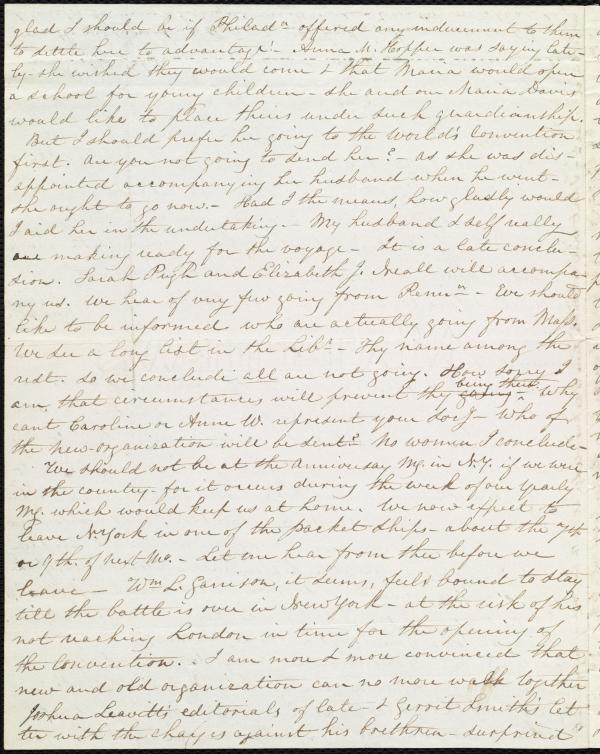 glad I should be if Philada. offered any inducement to them
to settle here to advantage!- Anna M. Hopper was saying late-
ly- she wished they would come & that Maria would open
a school for young children- she and our Maria Davis
would like to place theirs under such guardianship.
But I should prefer her going to the World's Convention
first. Are you not going to send her?- as she was dis-
appointed accompanying her husband when he went-
she ought to go now.- Had I the means, how gladly would
I aid her in the undertaking.- My husband & self really
are making ready for the voyage- It is a late conclu-
sion. Sarah Pugh and Elizabeth J. Neall will accompa-
ny us. We hear of very few going from Penna.- We should
like to be informed who are actually going from Mass.
We see a long list in the Libr.- Thy name among the
rest. so we conclude all are not going. How sorry I
am, that circumstances will prevent thy being there.- Why
cant Caroline or Anne W. represent your Socy.- Who of
the new-organization will be sent?- No women I conclude-
We should not be at the Anniversay Mg. in N.Y. if we were
in the country- for it occurs during the week of our Yearly
Mg. which would keep us at home. We now expect to
leave N. York in one of the packet ships- about the 7th
or 9th. of next Mo.- Let me hear from thee before we
leave- Wm. L. Garrison, it seems, feels bound to stay
till the battle is over in New York- at the risk of his
not reaching London in time for the opening of
the Convention.- I am more & more convinced that
new and old organization can no more walk together
Joshua Leavitt's editorials of late- & Gerrit Smith's let
ter with the charges against his brethren- surprised